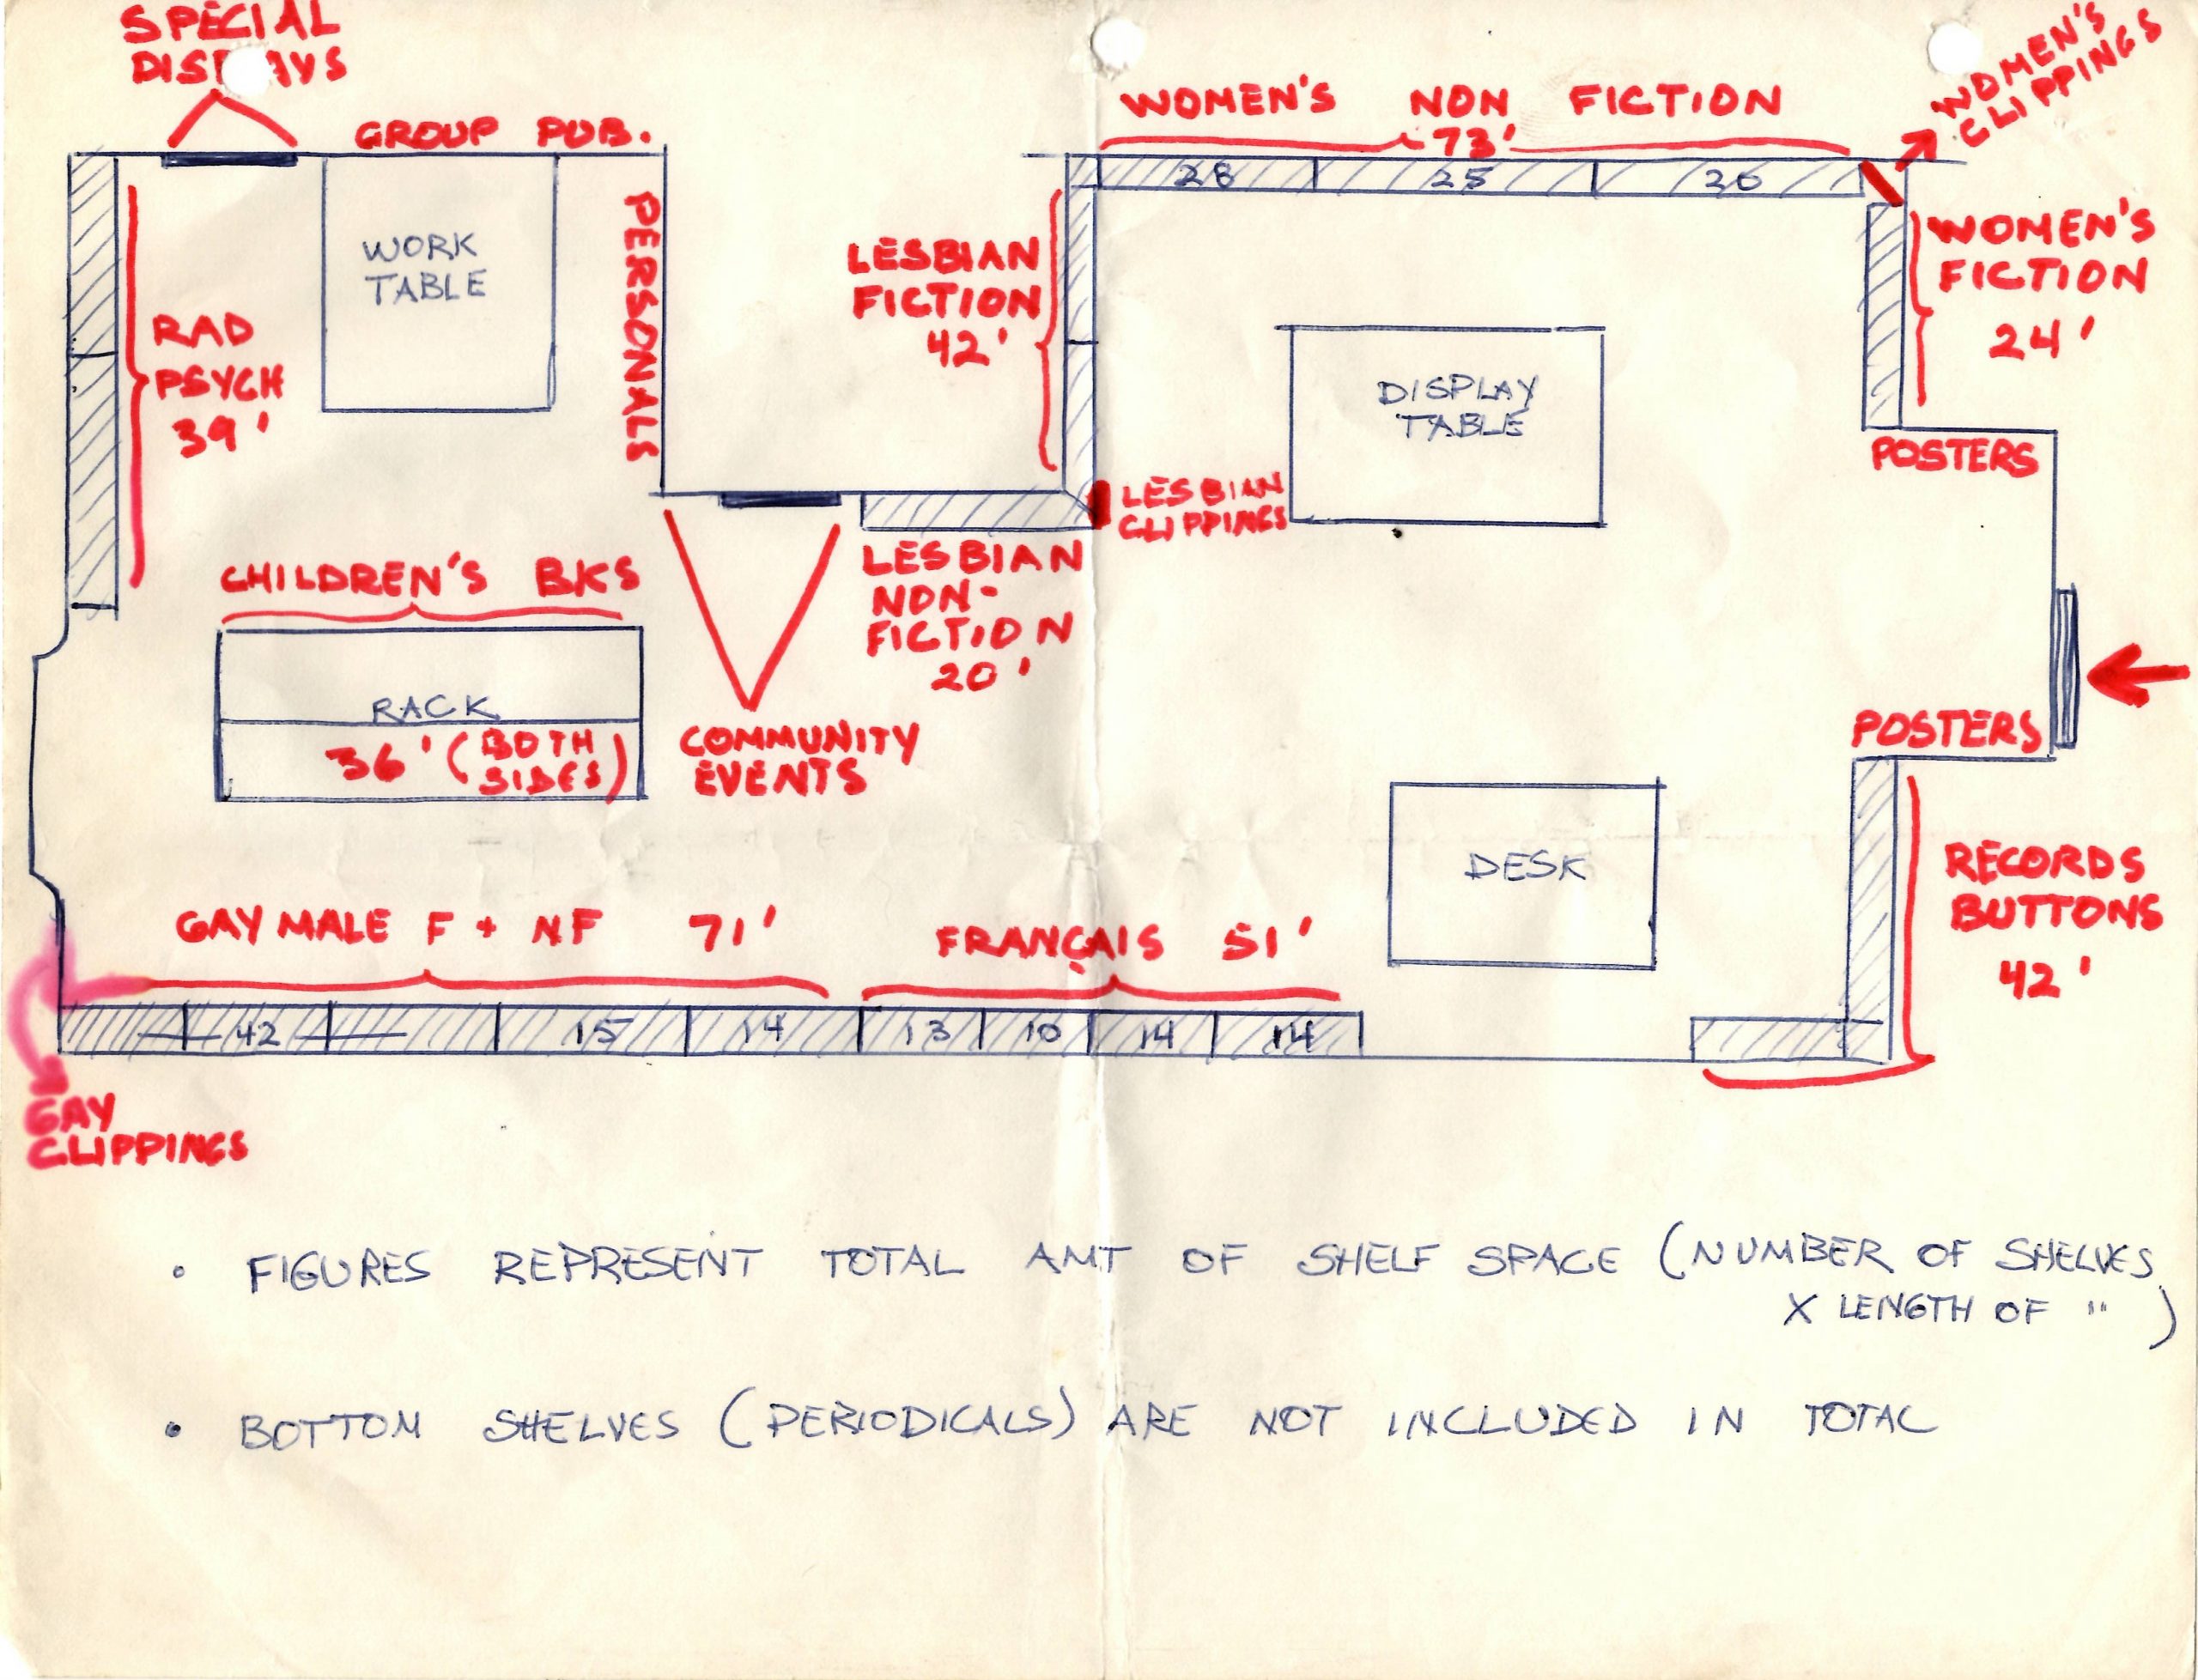 SPECIAL
DISPLAYS
GROUP PUB.
PERSONALS
WORK
TABLE
RAD
PSYCH
39'
CHILDREN'S BKS
RACK
36' (BOTH
SIDES)
COMMUNITY
EVENTS
LESBIAN
FICTION
42'
LESBIAN
NON-
FICTION
20'
LESBIAN
CLIPPINGS
WOMEN'S NON FICTION
73'
28 25 20
WOMEN'S
CLIPPINGS
WOMEN'S
FICTION
24'
DISPLAY
TABLE
POSTERS
POSTERS
DESK
RECORDS
BUTTONS
42'
GAY MALE F + NF 71'
FRANÇAIS 51'
42 15 14 13 10 14 14
GAY
CLIPPINGS
• FIGURES REPRESENT TOTAL AMT OF SHELF SPACE (NUMBER OF SHELVES
X LENGTH OF " )
• BOTTOM SHELVES (PERIODICALS) ARE NOT INCLUDED IN TOTAL